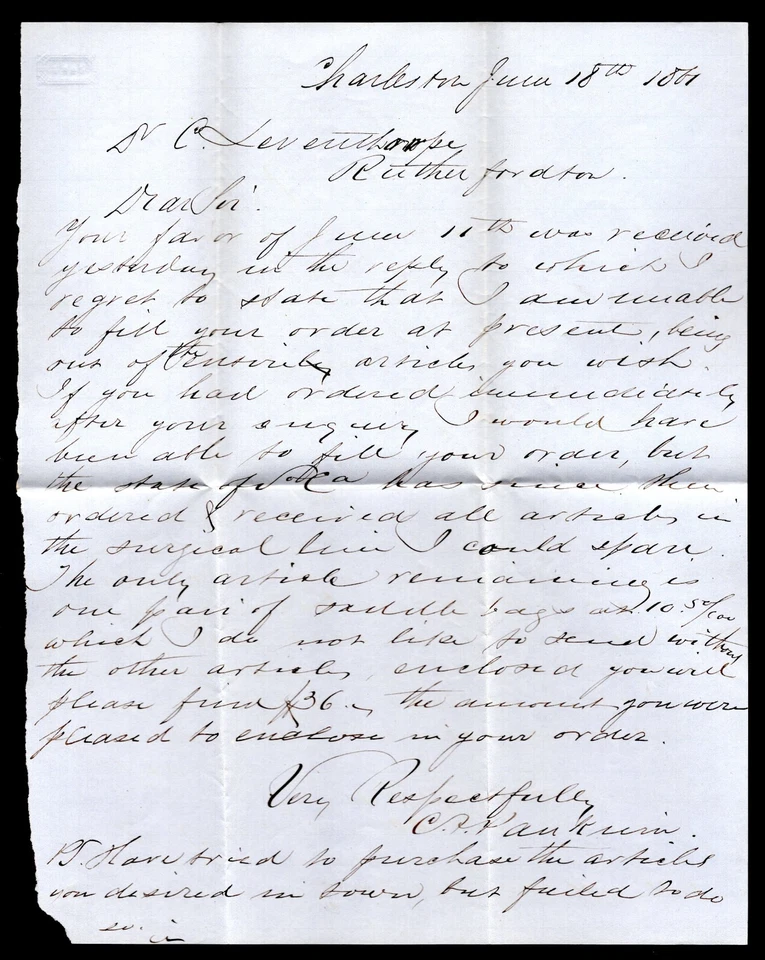 Charleston June 18th 1861
Dr C. Leventhorpe
Rutherfordton.
Dear Sir.
Your favor of June 11th was received
yesterday in the reply to which I
regret to state that I am unable
to fill your order at present, being
out of the articles you wish.
If you had ordered immediately
after your enquiry I would have
been able to fill your order, but
the state of has since then
ordered & received all articles in
the surgical line I could spare.
The only article remaining is
one pair of saddle bags at 10.50/00
which I do not like to send without
the other articles, enclosed you will
please find $36. the amount you were
pleased to enclose in your order.
Very Respectfully
C. F. Panknin.
PS. Have tried to purchase the articles
you desired in town, but failed to do
so.